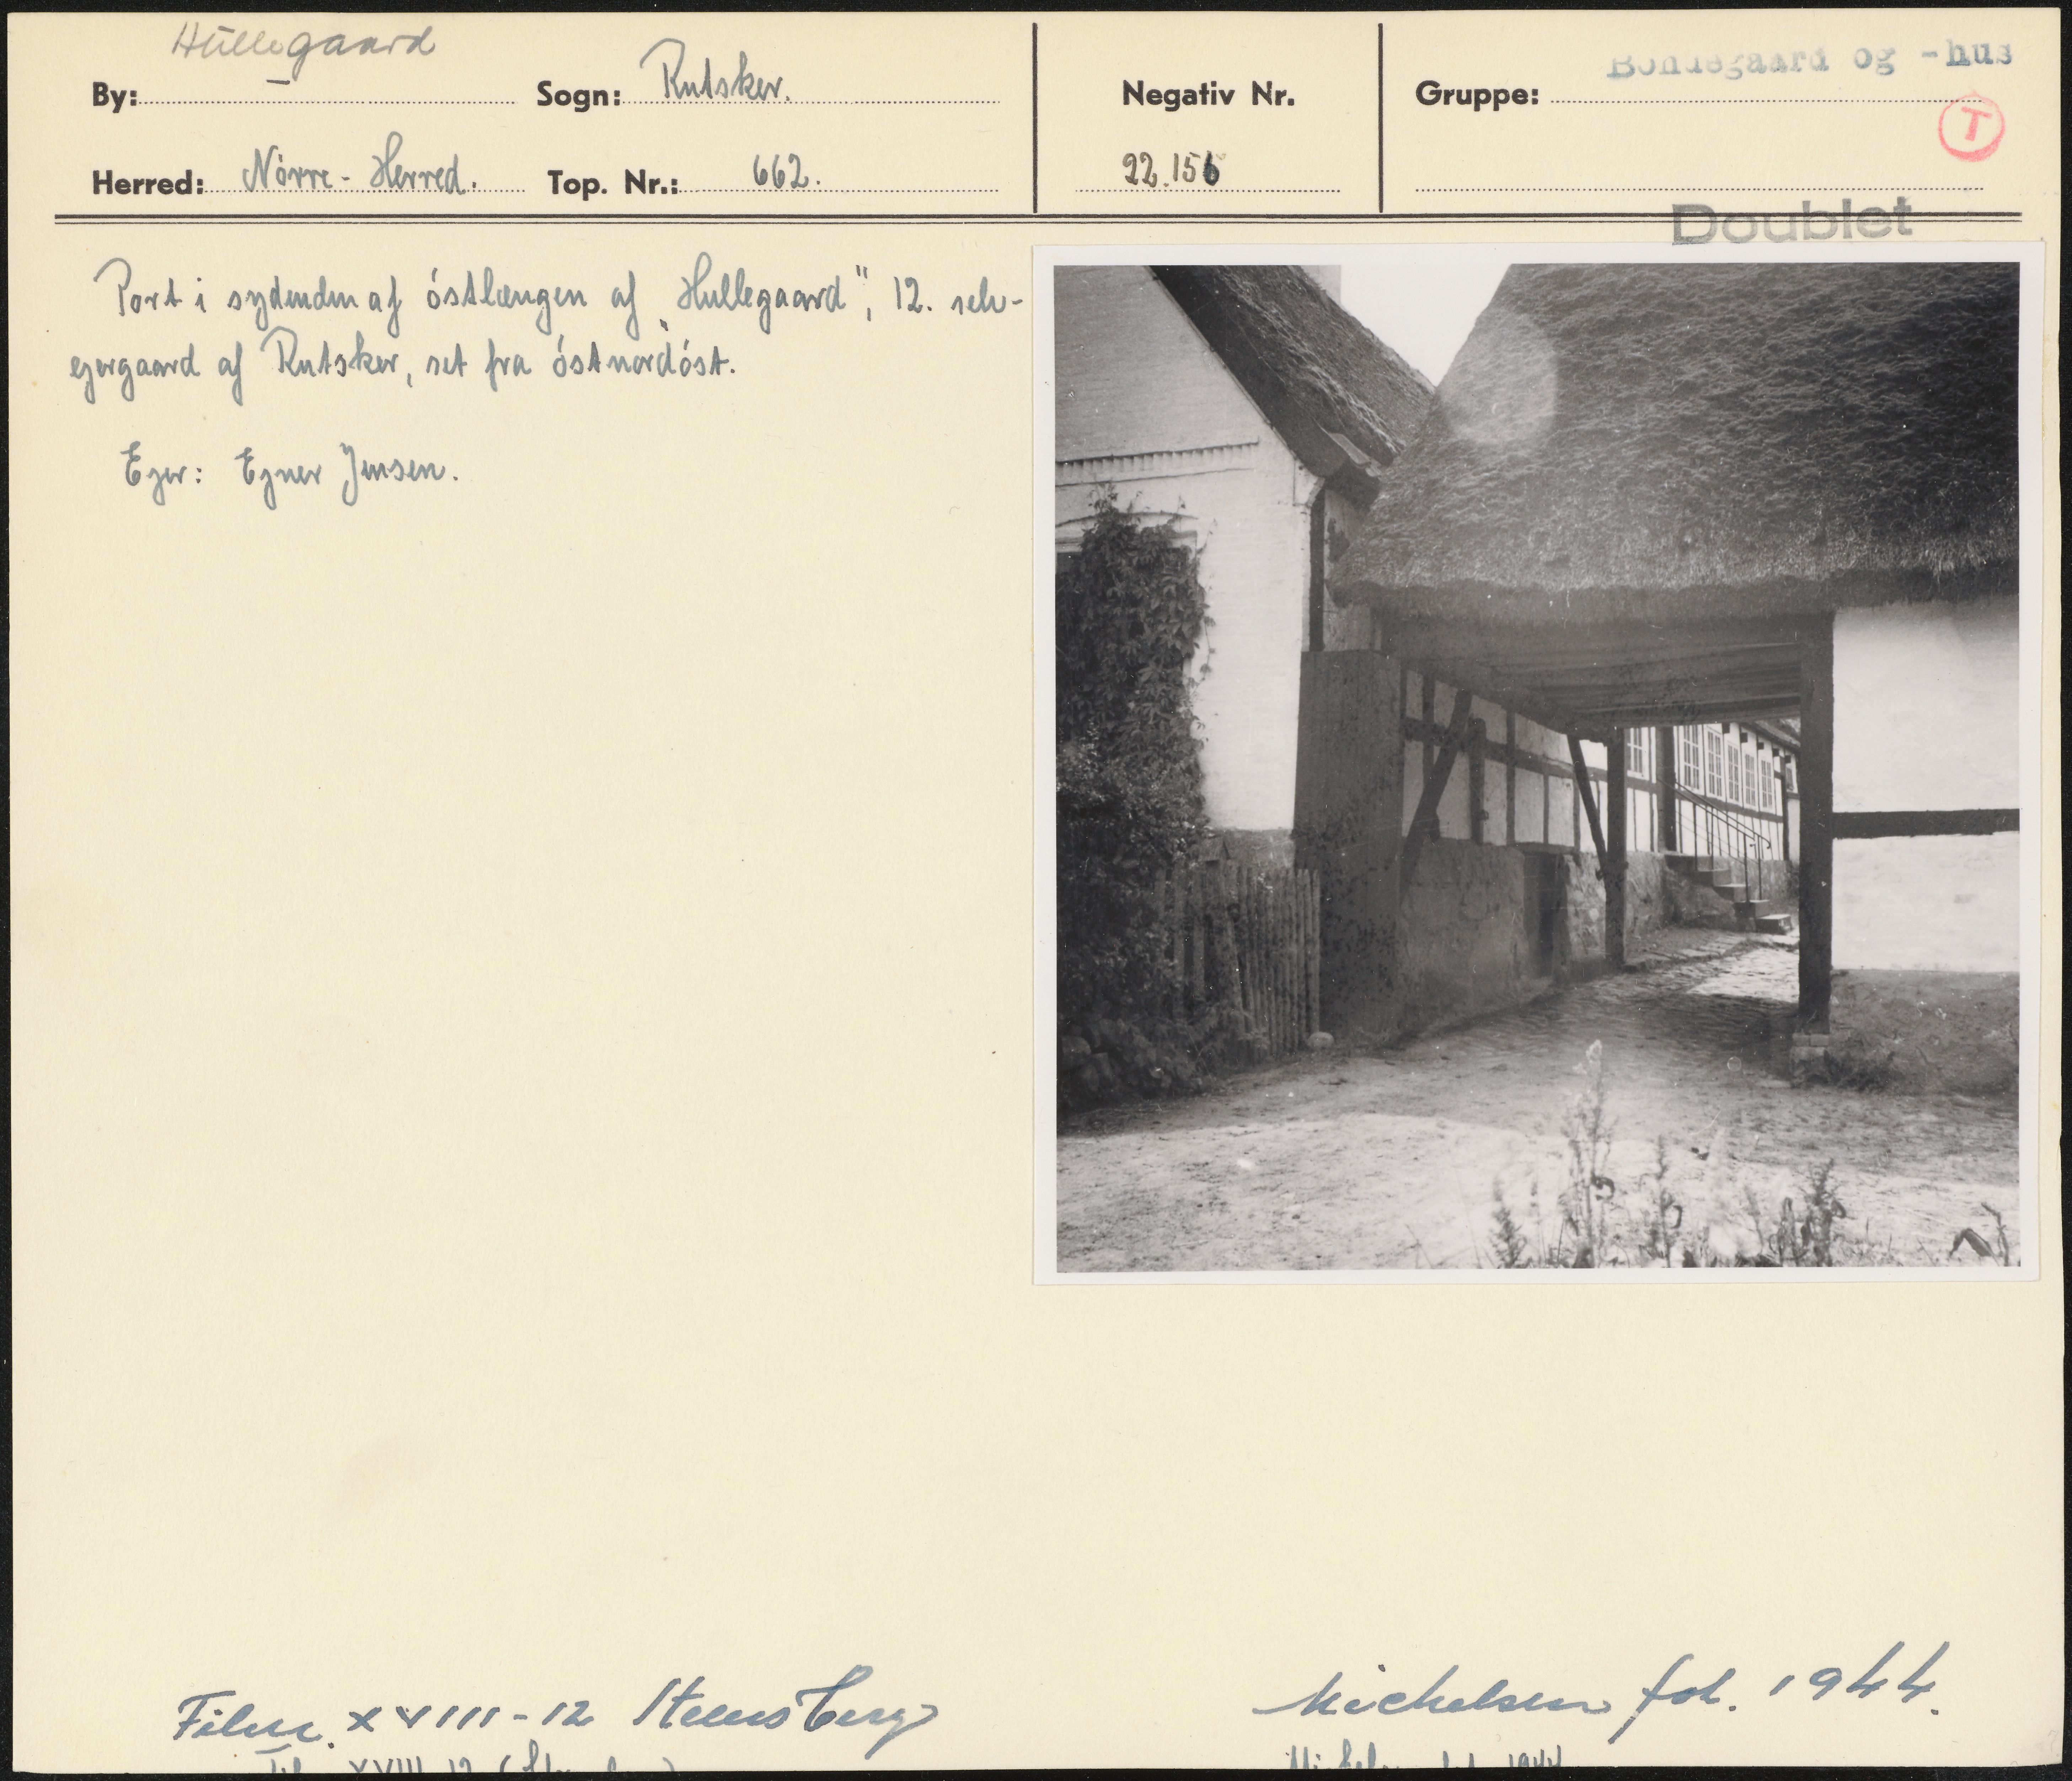 Hullegaard
By:
Sogn: Rutsker.
Negativ Nr.
Gruppe: Bondegaard og -hus
T
Herred: Nörre-Herred.
Top. Nr.: 662.
22.156
Doublet
Port i sydenden af östlængen af „Hullegaard", 12. selv-
ejergaard af Rutsker, set fra östnordöst.
Ejer: Ejner Jensen.
Film. XVIII-12 Steensberg
Michelsen fot. 1944.
XVIII 12
1944